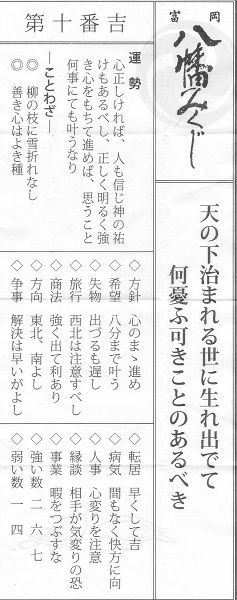 富岡
八幡みくじ
天の下治まれる世に生れ出でて
何憂ふ可きことのあるべき
第十番吉
運勢
心正しければ、人も信じ神の祐
けもあるべし、正しく明るく強
き心をもちて進めば、思うこと
何事にても叶うなり
―ことわざ―
◎ 柳の枝に雪折れなし
◎ 善き心はよき種
◇方針 心のまゝ進め
◇希望 八分まで叶う
◇失物 出づるも遅し
◇旅行 西北は注意すべし
◇商法 強く出て利あり
◇方向 東北、南よし
◇争事 解決は早いがよし
◇転居 早くして吉
◇病気 間もなく快方に向
◇人事 心変りを注意
◇縁談 相手が気変りの恐
◇事業 暇をつぶすな
◇強い数 二 六 七
◇弱い数 一 四